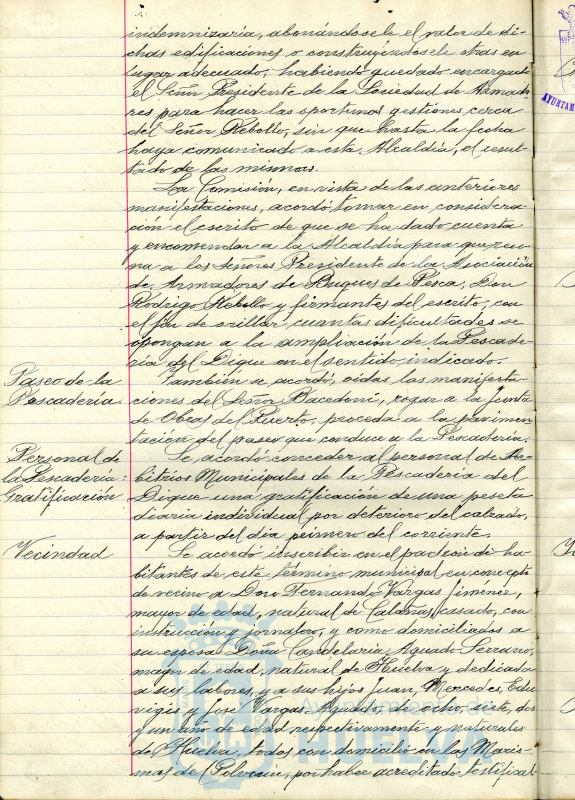 indemnizaría, abonándosele el valor de di-
chas edificaciones o construyéndosele otras en
lugar adecuado; habiendo quedado encargado
el Señor Presidente de la Sociedad de Armado-
res para hacer las oportunas gestiones cerca
del Señor Rebollo, sin que hasta la fecha
haya comunicado a esta Alcaldía, el resul-
tado de las mismas.
La Comisión, en vista de las anteriores
manifestaciones, acordó tomar en considera-
ción el escrito de que se ha dado cuenta
y encomendar a la Alcaldía para que reu-
na a los Señores Presidente de la Asociación
de Armadores de Buques de Pesca, Don
Rodrigo Rebollo y firmantes del escrito, con
el fin de orillar cuantas dificultades se
opongan a la ampliación de la Pescade-
ría del Dique en el sentido indicado.
Paseo de la
Pescadería
También se acordó, oídas las manifesta-
ciones del Señor Bacedoni, rogar a la Junta
de Obras del Puerto, proceda a la pavimen-
tación del paseo que conduce a la Pescadería.
Personal de
la Pescadería:
Gratificación
Se acordó conceder al personal de Ar-
bitrios Municipales de la Pescadería del
Dique una gratificación de una peseta
diaria individual por deterioro del calzado,
a partir del día primero del corriente.
Vecindad
Se acordó inscribir en el padrón de ha-
bitantes de este término municipal en concepto
de vecino a Don Fernando Vargas Jiménez,
mayor de edad, natural de Calañas, casado, con
instrucción y jornalero, y como domiciliados a
su esposa Doña Candelaria Aguado Serrano,
mayor de edad, natural de Huelva y dedicada
a sus labores, y a sus hijos Juan, Mercedes, Edu-
vigis y José Vargas Aguado, de ocho, siete, dos
y un año de edad respectivamente y naturales
de Huelva, todos con domicilio en las Maris-
mas del Polvorín, por haber acreditado testifical-
AYUNTAM